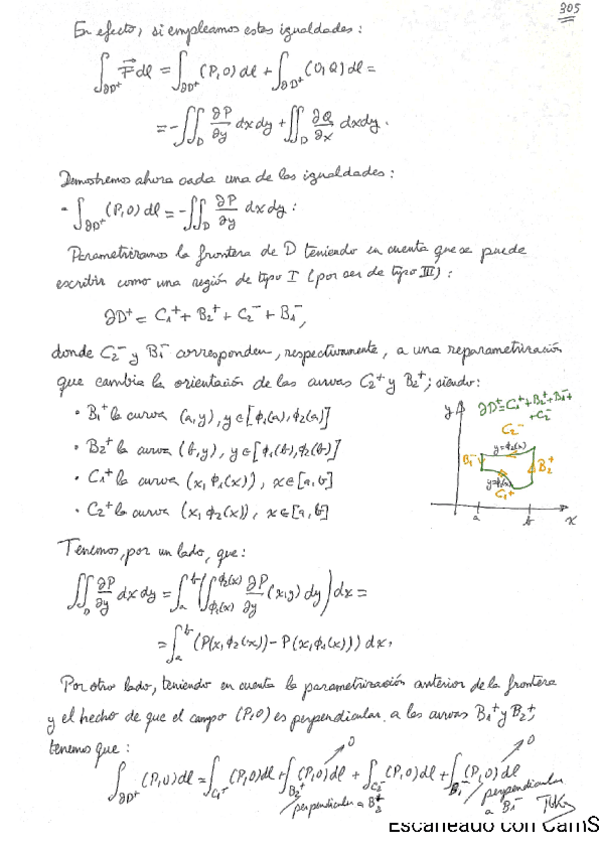 305
En efecto, si empleamos estas igualdades:
∫_{∂D⁺} F⃗ dl = ∫_{∂D⁺} (P,0) dl + ∫_{∂D⁺} (0,Q) dl =
= -∬_D ∂P/∂y dxdy + ∬_D ∂Q/∂x dxdy.
Demostremos ahora cada una de las igualdades:
• ∫_{∂D⁺} (P,0) dl = -∬_D ∂P/∂y dxdy:
Parametrizamos la frontera de D teniendo en cuenta que se puede
escribir como una región de tipo I (por ser de tipo III):
∂D⁺ = C₁⁺ + B₂⁺ + C₂⁻ + B₁⁻,
donde C₂⁻ y B₁⁻ corresponden, respectivamente, a una reparametrización
que cambia la orientación de las curvas C₂⁺ y B₂⁺; siendo:
• B₁⁺ la curva (a,y), y∈[ϕ₁(a),ϕ₂(a)]
• B₂⁺ la curva (b,y), y∈[ϕ₁(b),ϕ₂(b)]
• C₁⁺ la curva (x,ϕ₁(x)), x∈[a,b]
• C₂⁺ la curva (x,ϕ₂(x)), x∈[a,b]
y
∂D⁺=C₁⁺+B₂⁺+B₁⁺
+C₂⁻
C₂⁻
y=ϕ₂(x)
B₁⁻
B₂⁺
y=ϕ₁(x)
C₁⁺
a
b
x
Tenemos, por un lado, que:
∬_D ∂P/∂y dxdy = ∫_a^b (∫_{ϕ₁(x)}^{ϕ₂(x)} ∂P/∂y (x,y) dy) dx =
= ∫_a^b (P(x,ϕ₂(x)) - P(x,ϕ₁(x))) dx.
Por otro lado, teniendo en cuenta la parametrización anterior de la frontera
y el hecho de que el campo (P,0) es perpendicular a las curvas B₁⁺ y B₂⁺,
tenemos que:
0
0
∫_{∂D⁺} (P,0) dl = ∫_{C₁⁺} (P,0) dl + ∫_{B₂⁺} (P,0) dl + ∫_{C₂⁻} (P,0) dl + ∫_{B₁⁻} (P,0) dl
perpendicular a B₂⁺
perpendicular
a B₁⁻
Escaneado con CamS